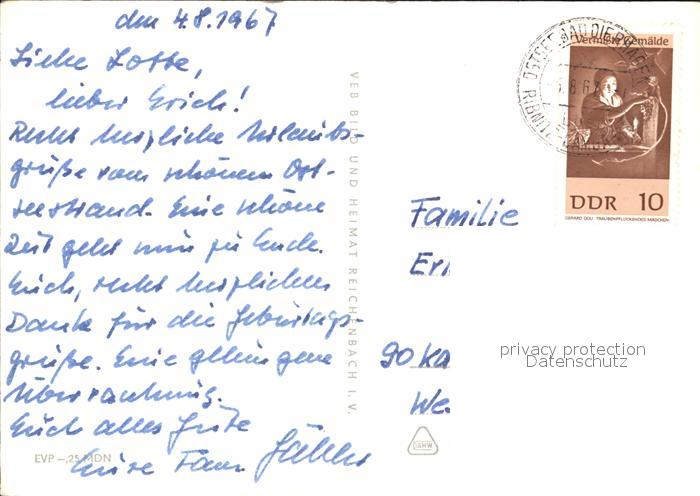 den 4.8.1967
Liebe Lotte,
lieber Erich!
Recht herzliche Urlaubs-
grüße vom schönen Ost-
seestrand. Eine schöne
Zeit geht nun zu Ende.
Euch, recht herzlichen
Dank für die Geburtstags-
grüße. Eine gelungene
Überraschung.
Euch alles Gute
Eure Fam.
EVP –,25 MDN
VEB BILD UND HEIMAT REICHENBACH I. V.
OSTSEEBAD DIERHAGEN
RIBNITZ
Vermißte Gemälde
DDR 10
GERARD DOU · TRAUBENPFLÜCKENDES MÄDCHEN
Familie
Eri
90 Ka
We
privacy protection
Datenschutz